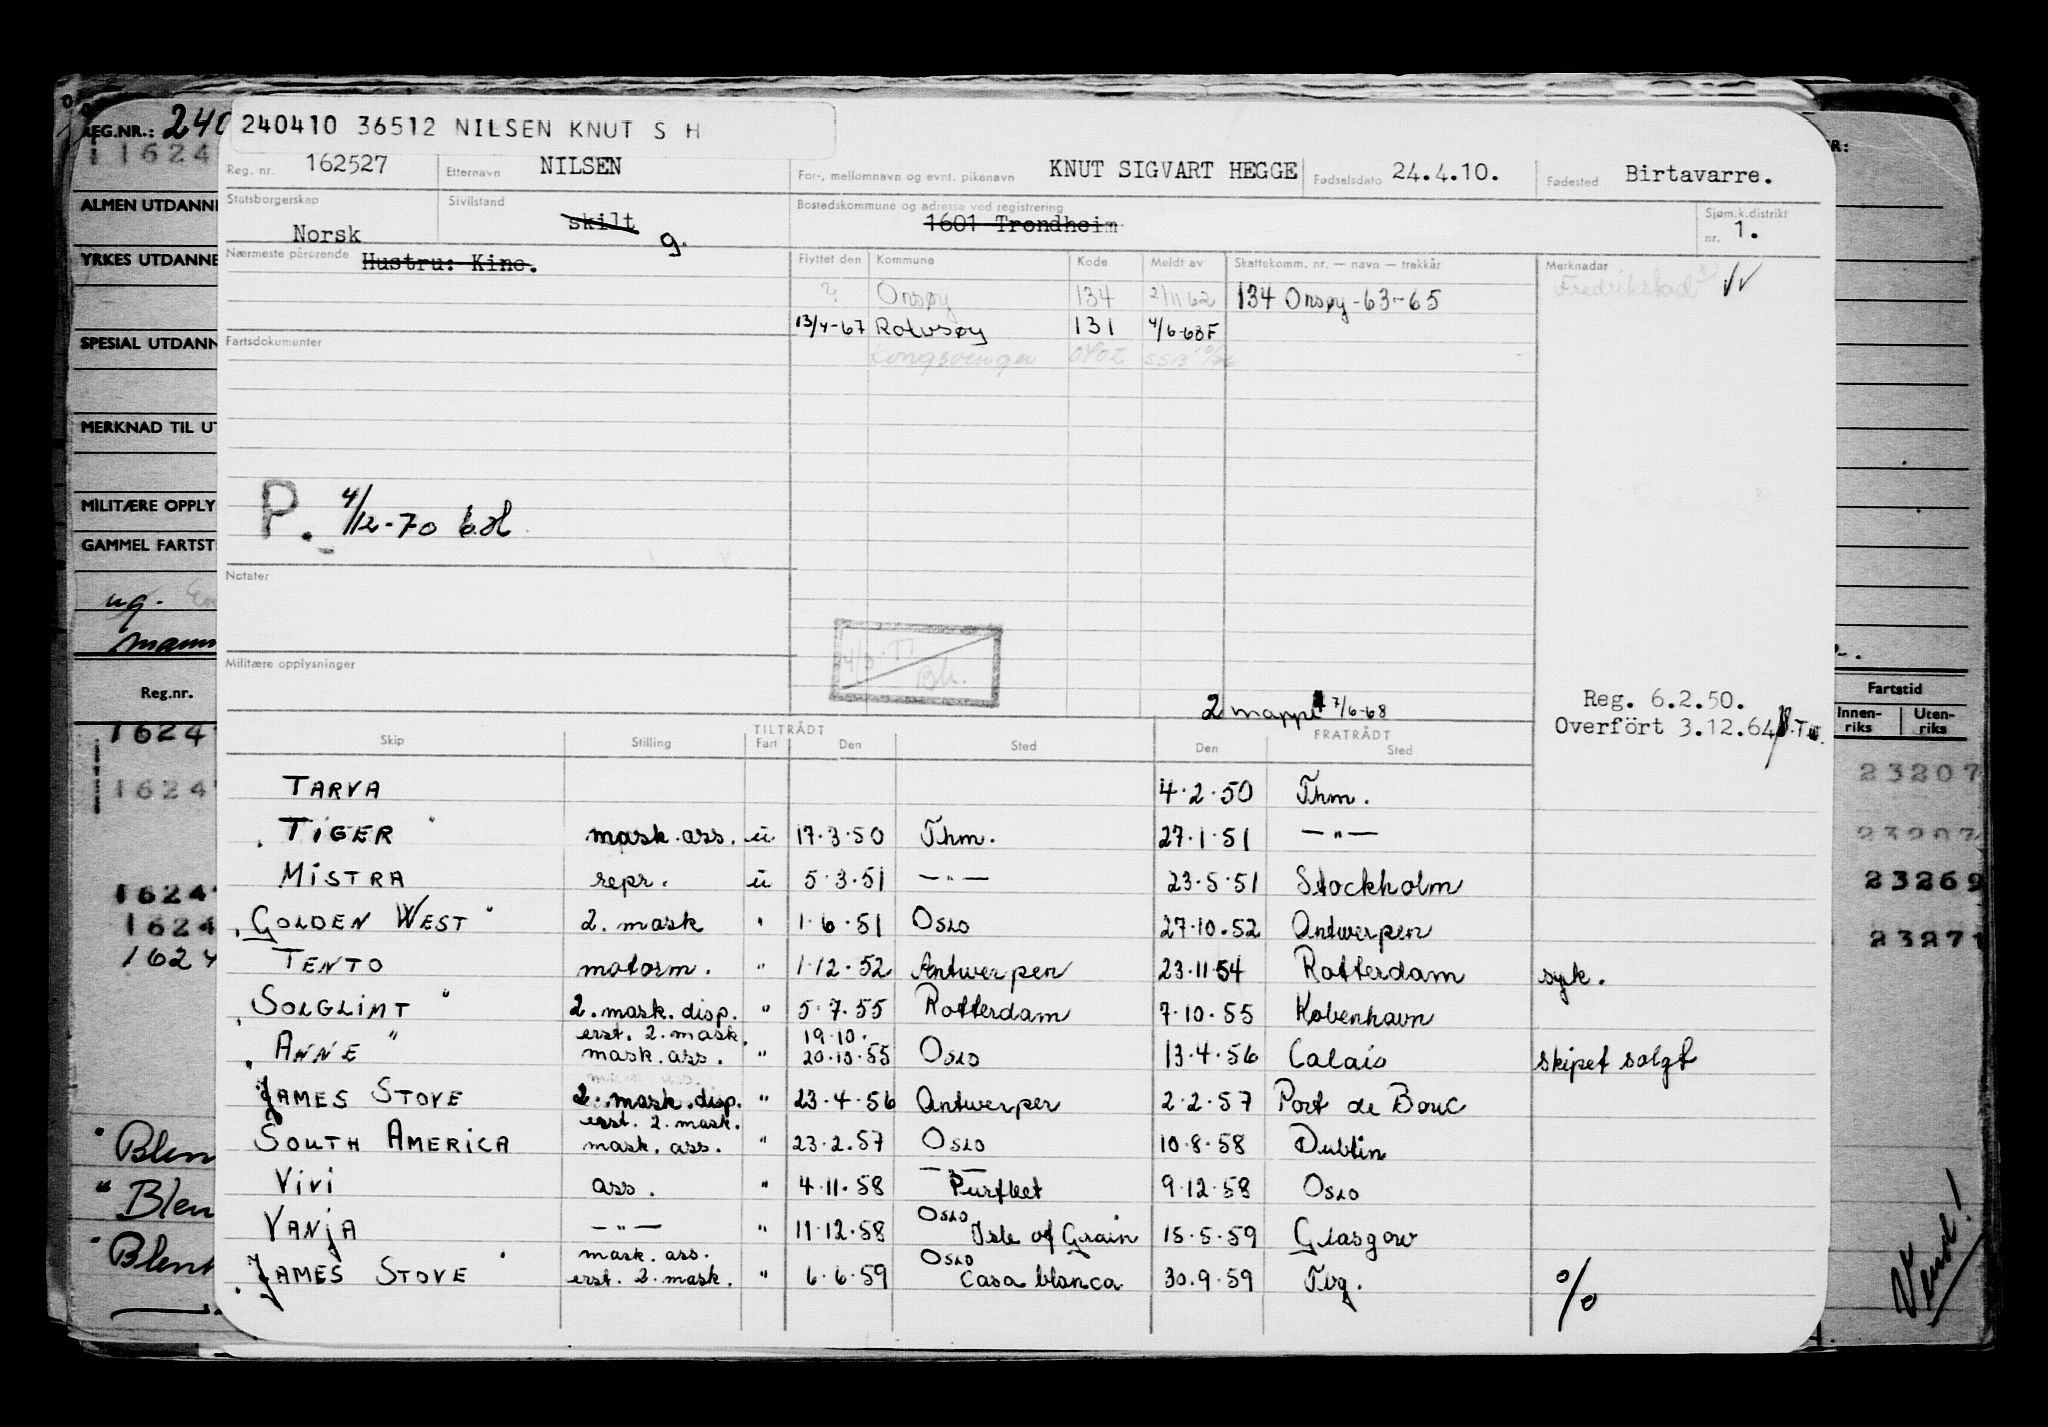 240410 36512 NILSEN KNUT S H
REG.NR.: 240
Reg. nr. 162527 Etternavn NILSEN For-, mellomnavn og evnt. pikenavn KNUT SIGVART HEGGE Fødselsdato 24.4.10. Fødested Birtavarre.
Statsborgerskap Norsk Sivilstand skilt g. Bostedskommune og adresse ved registrering 1601 Trondheim Sjøm.k.distrikt nr. 1.
Nærmeste pårørende Hustru: Kine.
Flyttet den Kommune Kode Meldt av Skattekomm. nr. — navn — trekkår Merknader
? Onsøy 134 2/11-62 134 Onsøy-63-65 Fredrikstad
13/4-67 Rolvsøy 131 4/6-68F
Kongsvinger 0402
Fartsdokumenter
P. 4/12-70
Notater
Militære opplysninger
2 mappe 7/6-68
Reg. 6.2.50.
Overfört 3.12.64
TILTRÅDT FRATRÅDT
Skip Stilling Fart Den Sted Den Sted
TARVA 4.2.50 Thm.
TIGER " mask.ass. u 17.3.50 Thm. 27.1.51 — " —
MISTRA repr. u 5.3.51 — " — 23.5.51 Stockholm
GOLDEN WEST " 2. mask " 1.6.51 Oslo 27.10.52 Antwerpen
TENTO motorm. " 1.12.52 Antwerpen 23.11.54 Rotterdam syk.
SOLGLIMT " 2. mask. disp. " 5.7.55 Rotterdam 7.10.55 København
erst. 2. mask. 19.10.
ANNE " mask. ass. " 20.10.55 Oslo 13.4.56 Calais skipet solgt
JAMES STOVE 2. mask. disp. " 23.4.56 Antwerpen 2.2.57 Port de Bouc
erst. 2. mask.
SOUTH AMERICA mask. ass. " 23.2.57 Oslo 10.8.58 Dublin
VIVI ass. " 4.11.58 — " — Purfleet 9.12.58 Oslo
VANJA — " — " 11.12.58 Oslo Isle of Grain 15.5.59 Glasgow
mask. ass. Oslo
JAMES STOVE " erst. 2. mask. " 6.6.59 Casablanca 30.9.59 Tbg. %
ALMEN UTDANNE
YRKES UTDANNE
SPESIAL UTDANN
MERKNAD TIL UT
MILITÆRE OPPLY
GAMMEL FARTST
ug.
Reg.nr.
1624
1624
1624
1624
1624
" Blen
" Blen
" Blen
Fartstid
Innen-riks Uten-riks
23207
23207
23269
23271
Vend!